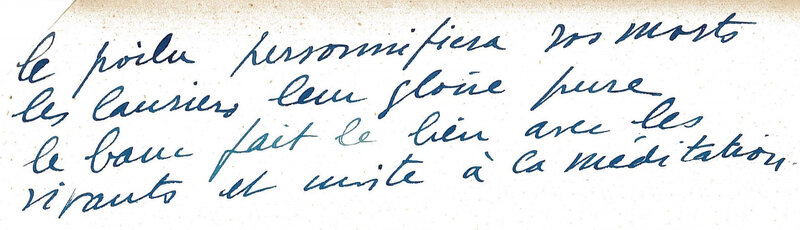 le poilu personnifiera vos morts
les lauriers leur gloire pure
le banc fait le lien avec les
vivants et invite à la méditation.